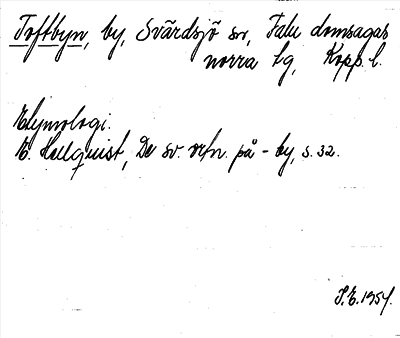 Toftbyn, by, Svärdsjö sn, Falu domsagas
norra tg, Kopp. l.
Etymologi.
E. Hellquist, De sv. ortn. på - by, s. 32.
S.E. 1954.